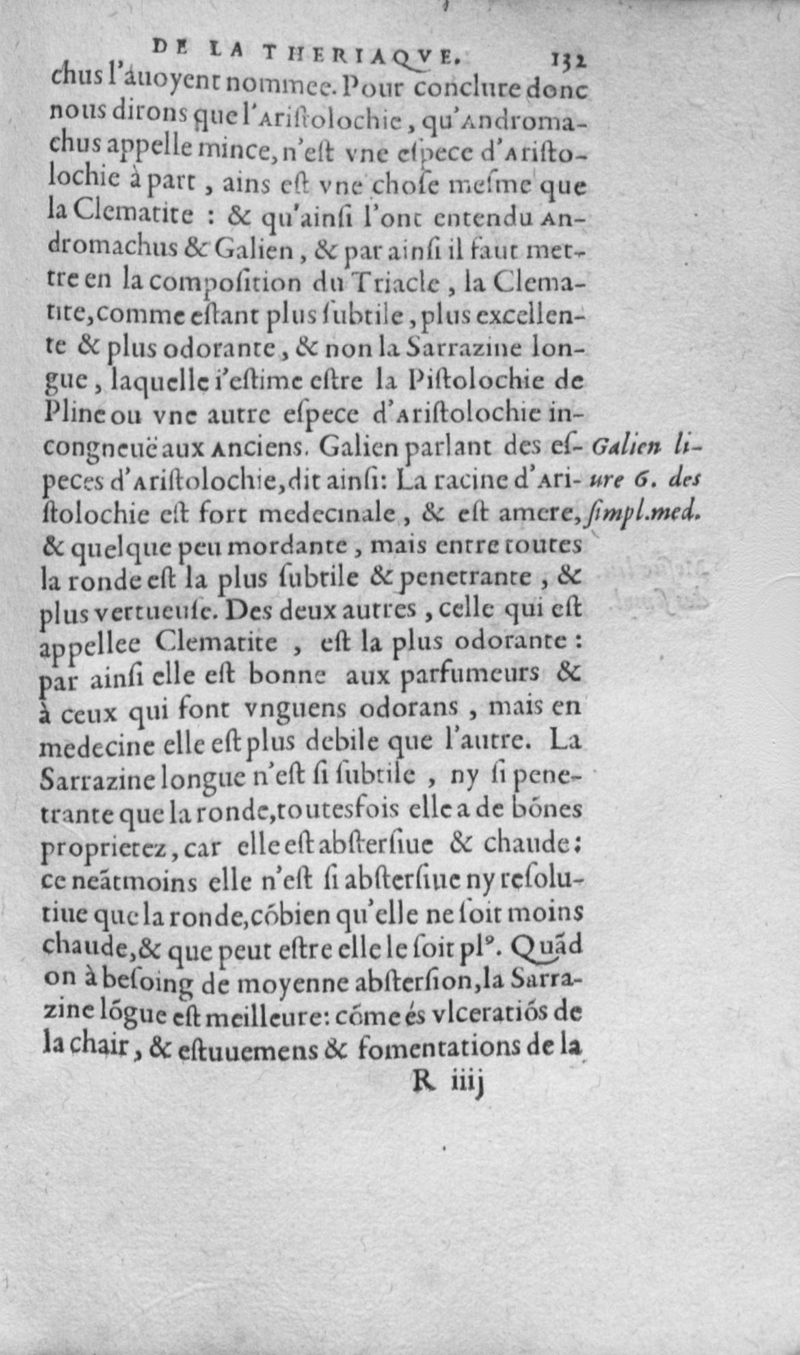 DE LA THERIAQVE. 132
chus l'auoyent nommee. Pour conclure donc
nous dirons que l'Ariſtolochie, qu'Androma-
chus appelle mince, n'eſt vne eſpece d'Ariſto-
lochie à part, ains eſt vne choſe meſme que
la Clematite : & qu'ainſi l'ont entendu An-
dromachus & Galien, & par ainſi il faut met-
tre en la compoſition du Triacle, la Clema-
tite, comme eſtant plus ſubtile, plus excellen-
te & plus odorante, & non la Sarrazine lon-
gue, laquelle i'eſtime eſtre la Piſtolochie de
Pline ou vne autre eſpece d'Ariſtolochie in-
congneuë aux Anciens. Galien parlant des eſ-
Galien li-
peces d'Ariſtolochie, dit ainſi: La racine d'Ari-
ure 6. des
ſtolochie eſt fort medecinale, & eſt amere,
ſimpl. med.
& quelque peu mordante, mais entre toutes
la ronde eſt la plus ſubtile & penetrante, &
plus vertueuſe. Des deux autres, celle qui eſt
appellee Clematite, eſt la plus odorante :
par ainſi elle eſt bonne aux parfumeurs &
à ceux qui font vnguens odorans, mais en
medecine elle eſt plus debile que l'autre. La
Sarrazine longue n'eſt ſi ſubtile, ny ſi pene-
trante que la ronde, toutesfois elle a de bónes
proprietez, car elle eſt abſterſiue & chaude:
ce neãtmoins elle n'eſt ſi abſterſiue ny reſolu-
tiue que la ronde, cóbien qu'elle ne ſoit moins
chaude, & que peut eſtre elle le ſoit plꝰ. Quãd
on à beſoing de moyenne abſterſion, la Sarra-
zine lógue eſt meilleure: cóme és vlceratiós de
la chair, & eſtuuemens & fomentations de la
R iiij